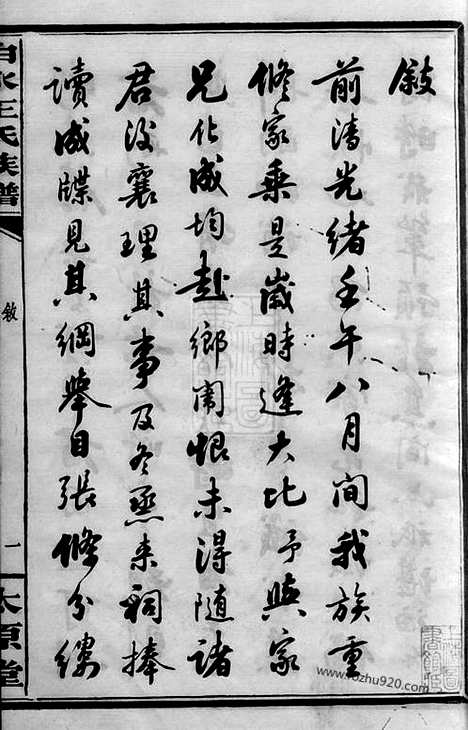 敍
前清光緒壬午八月間我族重
修家乘是歲時逢大比予與家
兄化成均赴鄉闈恨未得隨諸
君後襄理其事及冬烝来祠捧
讀成牒見其綱舉目張條分縷
白水王氏族譜
敘
一
太原堂
www.rozhu920.com